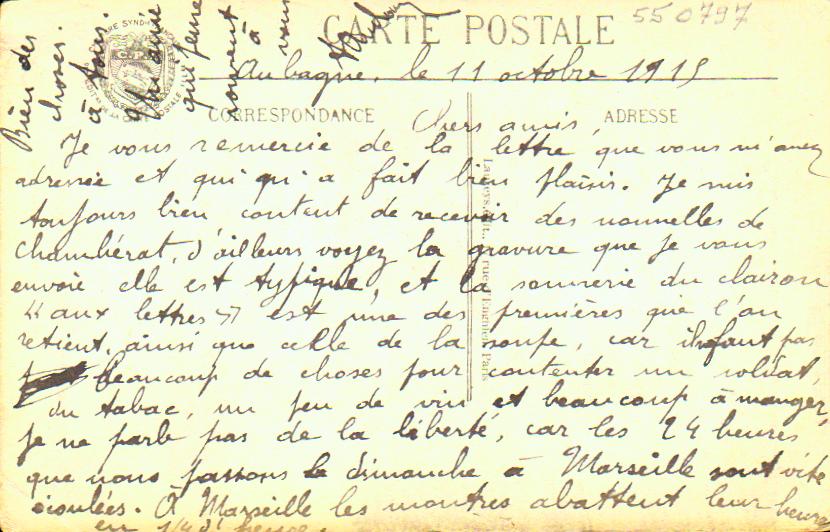 CARTE POSTALE
550797
Aubagne, le 11 octobre 1915
CORRESPONDANCE
ADRESSE
Chers amis,
Je vous remercie de la lettre que vous m'avez
adressée et qui qu'a fait bien plaisir. Je suis
toujours bien content de recevoir des nouvelles de
Chambérat, d'ailleurs voyez la gravure que je vous
envoie elle est typique, et la sonnerie du clairon
"aux lettres" est une des premières que l'on
retient, ainsi que celle de la soupe, car il faut pas
beaucoup de choses pour contenter un soldat,
du tabac, un peu de vin et beaucoup à manger,
je ne parle pas de la liberté, car les 24 heures
que nous passons le dimanche à Marseille sont vite
écoulées. À Marseille les montres abattent leur heure
en 1/4 d'heure.
Bien des
choses
à tous.
Un ami
qui pense
souvent
à
vous